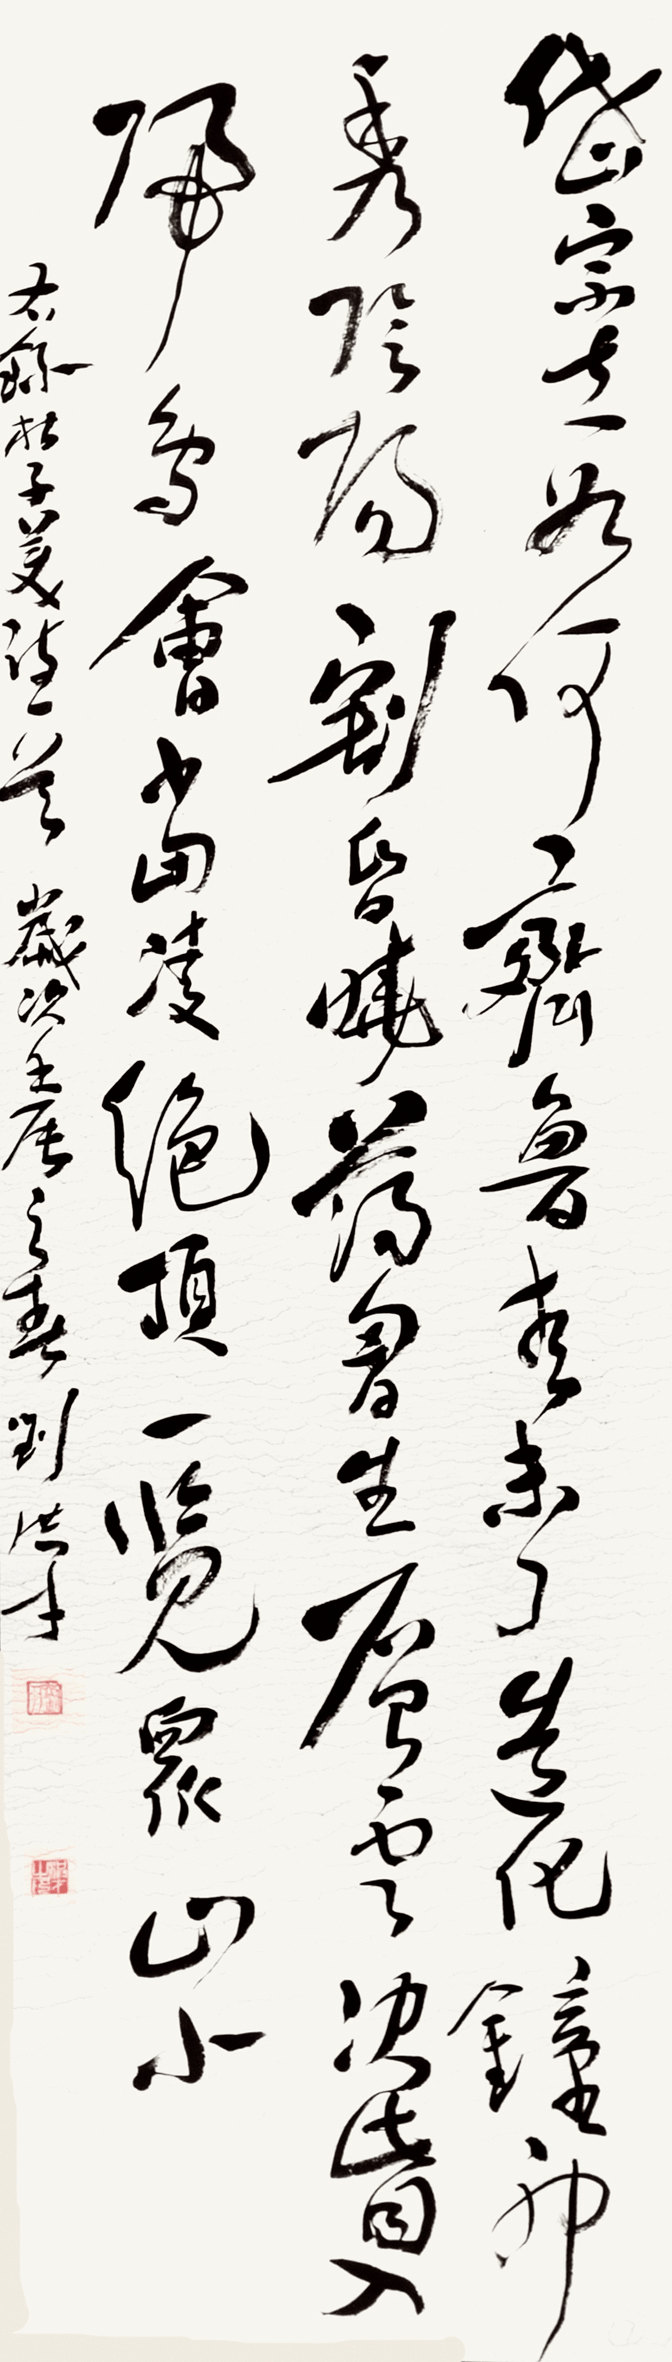 岱宗夫如何齊魯青未了造化鐘神
秀陰陽割昏曉蕩胸生層雲決眥入
歸鳥會當凌絕頂一覽眾山小
右錄杜子美詩一首 歲次壬辰之春 劉洪